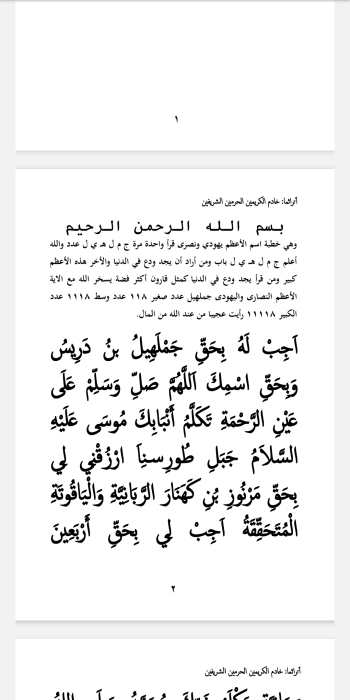 ١
أنراثما: خادم الكريمين الحرمين الشريفين
بسم الله الرحمن الرحيم
وهي خطبة اسم الأعظم يهودي ونصرى قرأ واحدة مرة ج م ل هـ ي ل عدد والله
أعلم ج م ل هـ ي ل باب ومن أراد أن يجد ودع في الدنيا والأخر هذه الأعظم
كبير ومن قرأ يجد ودع في الدنيا كمثل قارون أكثر فضة يسخر الله مع الاية
الأعظم النصارى واليهودى جملهيل عدد صغير ١١٨ عدد وسط ١١١٨ عدد
الكبير ١١١١٨ رأيت عجيبا من عند الله من المال.
اَجِبْ لَهُ بِحَقِّ جَمْلَهِيلُ بنُ دَرِيسُ
وَبِحَقِّ اسْمِكَ اَللَّهُمَّ صَلِّ وَسَلِّمْ عَلَى
عَيْنِ الرَّحْمَةِ تَكَلَّمُ أَنْبَابِكَ مُوسَى عَلَيْهِ
السَّلاَمُ جَبَلِ طُورِسـنِاَ ارْزُقْنِي لِي
بِحَقِّ مَرْنُوزِ بْنِ كَهَنَارَ الرَّبَانِيَّةِ وَالْيَاقُوتَةِ
الْمُتَحَقِّقَةُ اَجِبْ لِي بِحَقِّ أَرْبَعِينَ
٢
أنراثما: خادم الكريمين الحرمين الشريفين